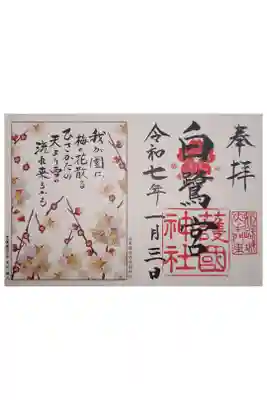 奉拝
白鷺宮
護國
神社
令和七年一月三日
我が園に
梅の花散る
ひさかたの
天より雪の
流れ来るかも